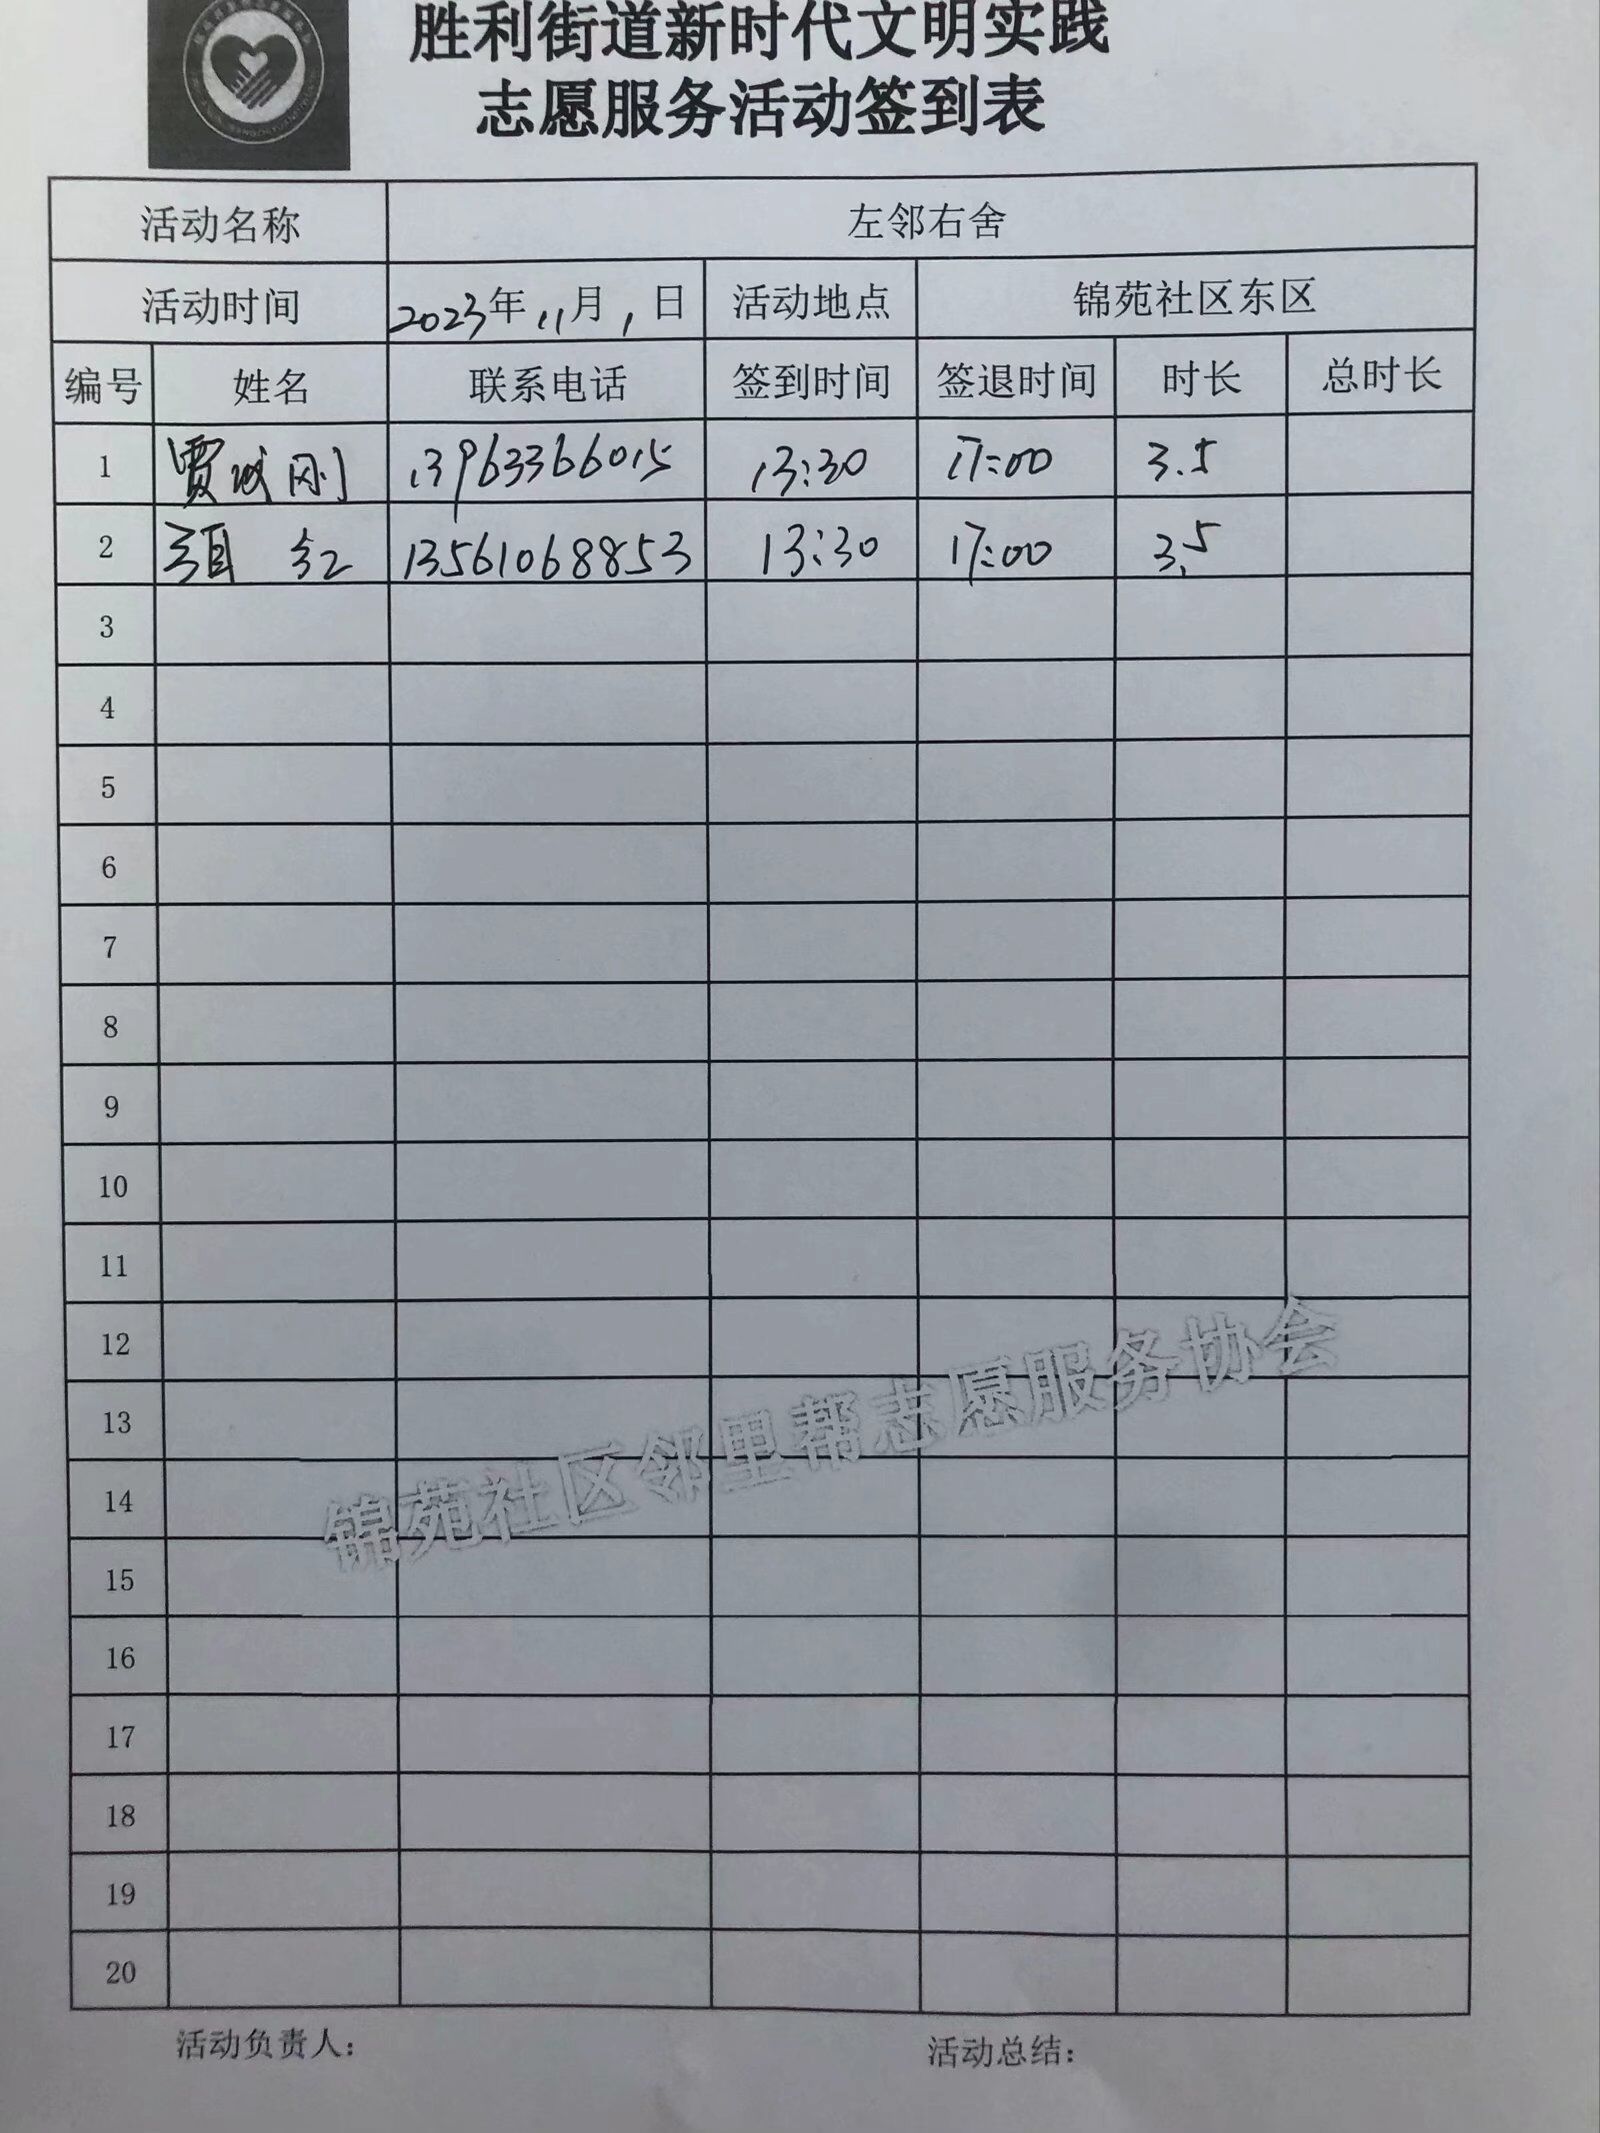 胜利街道新时代文明实践
志愿服务活动签到表
活动名称 左邻右舍
活动时间 2023年 11月 1日 活动地点 锦苑社区东区
编号 姓名 联系电话 签到时间 签退时间 时长 总时长
1 贾城刚 13963366015 13:30 17:00 3.5
2 项红 13561068853 13:30 17:00 3.5
3
4
5
6
7
8
9
10
11
12
13
14
15
16
17
18
19
20
锦苑社区邻里帮志愿服务协会
活动负责人： 活动总结：